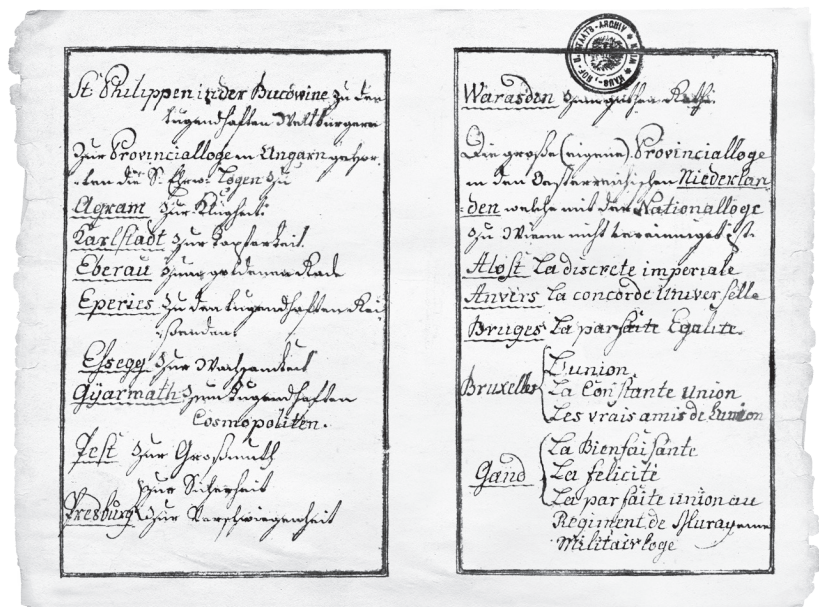 St. Philippen in der Bucowine zu den
tugendhaften Weltbürgern
Zur Provincialloge in Ungarn gehör-
-ten die S. Ehrw. Logen zu
Agram zur Klugheit.
Karlstadt zur Tapferkeit.
Eberau zum goldenen Rad
Eperies zu den tugendhaften Rei-
senden.
Essegg zur Wachsamkeit
Gÿarmath zum tugendhaften
Cosmopoliten.
Pest zur Großmuth
zur Sicherheit
Presburg zur Verschwiegenheit
HAUS- HOF- U. STAATS-ARCHIV WIEN
Warasden zum guthen Rathe.
Die große (eigene) Provincialloge
in den Oesterreichischen Niederlan-
-den welche mit der Nationalloge
zu Wienn nicht vereiniget ist.
Alost La discrete imperiale
Anvers la concorde Universelle
Bruges La parfaite Egalite.
Bruxelles
L'union
La Constante Union
Les vrais amis de L'union
Gand
La Bienfaisante
La felicité
La parfaite union au
Regiment de Murray eine
Militair loge